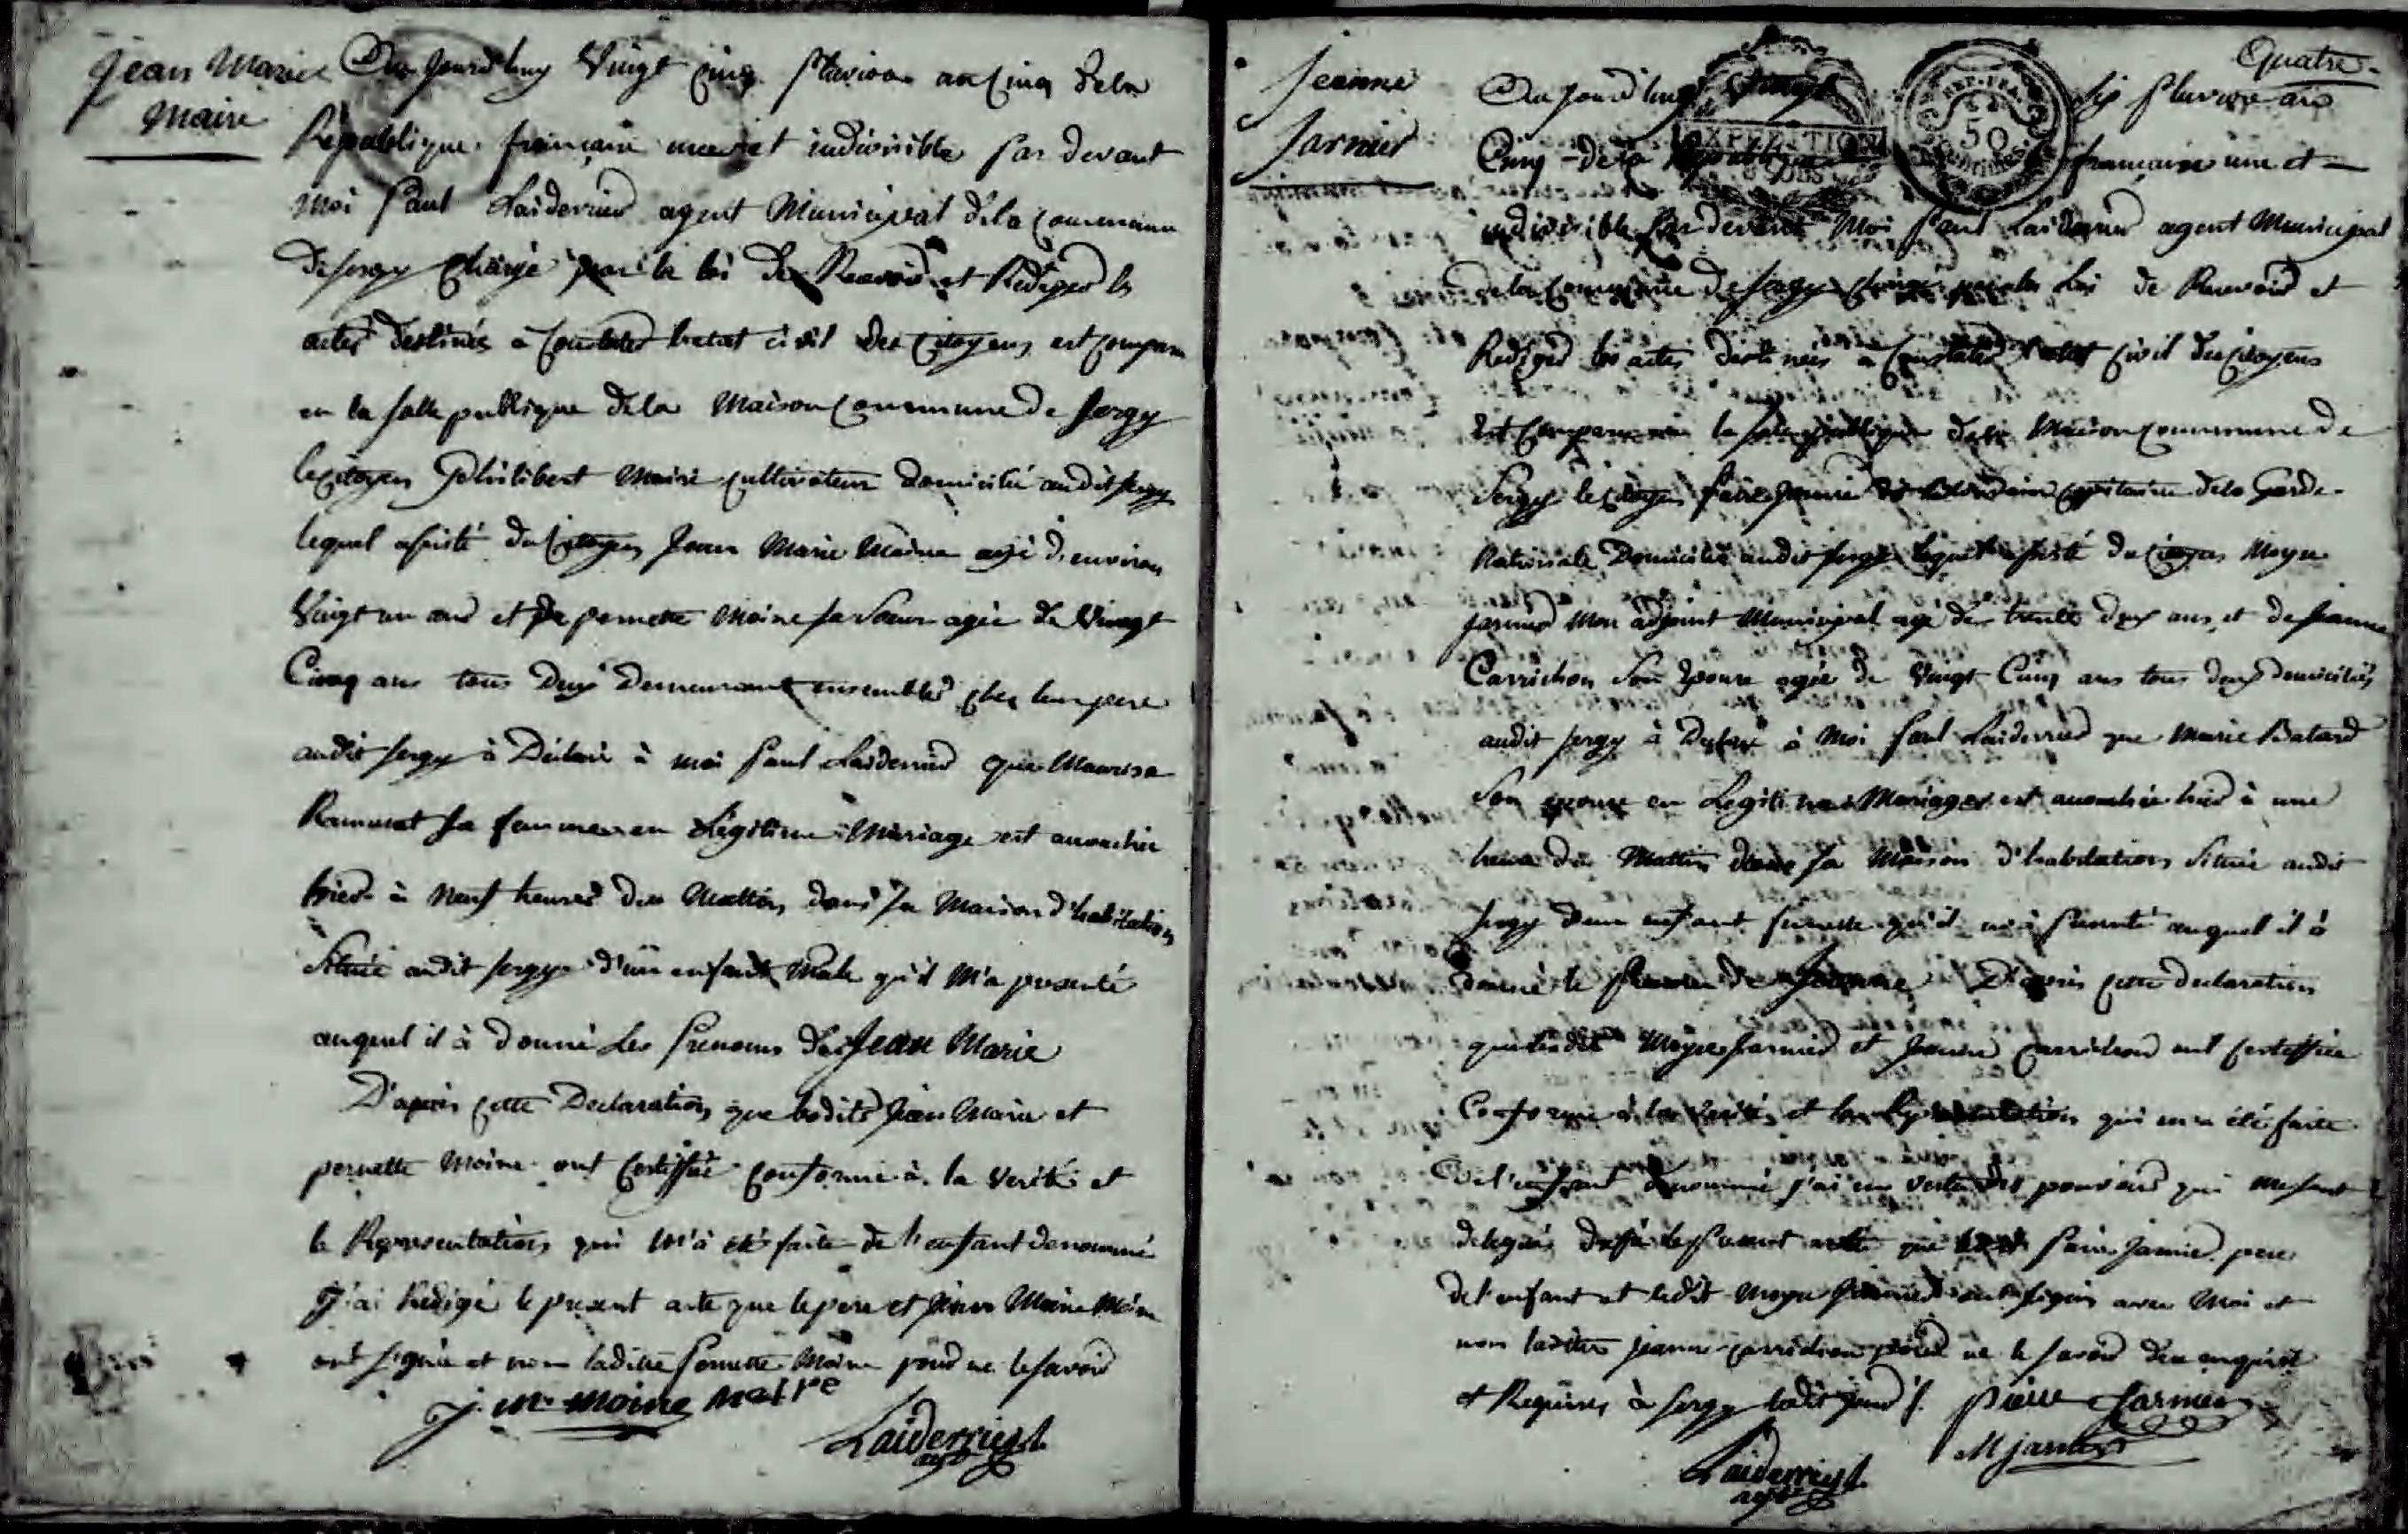 Jean Marie
Maire
Aujourd'huy Vingt Cinq Pluviose an Cinq de la
Republique française une et indivisible par devant
moi Paul Laiderrier agent Municipal de la Commune
de Sergy chargé par la loi de Recevoir et Rediger les
actes destinés a Constater l'etat civil des Citoyens est comparu
en la salle publique de la Maison Commune de Sergy
le citoyen Philibert Moine cultivateur domicilié audit Sergy
lequel assisté du Citoyen Jean Marie Moine agé d'environ
Vingt un ans et de pernette Moine sa Soeur agée de Vingt
Cinq ans tous deux Demeurant ensembles chez leur pere
audit Sergy à Déclaré à moi Paul Laiderrier que
sa femme en Légitime Mariage est accouchée
hier à Neuf heures du Mattin dans sa Maison d'habitation
Située audit Sergy d'un enfant Male qu'il M'a presenté
auquel il à donné les Prenoms de Jean Marie
D'après cette Declaration que lesdits Jean Marie et
pernette Moine ont Certiffiée conforme à la Verité et
la Representation qui M'à été faite de l'enfant denommé
J'ai Rédigé le present acte que le pere et Jean Marie Moine
ont signé et non ladite Pernette Moine pour ne le savoir
J. m. moine
Laiderrier
agt
Quatre
Jeanne
Jarnier
Aujourd'huy Vingt Six Pluviose an
Cinq de la Republique française une et
indivisible Par devant Moi Paul Laiderrier agent Municipal
de la Commune de Sergy chargé par la Loi de Recevoir et
Rediger les actes destinées a Constater l'etat Civil des Citoyens
Est Comparu en la salle publique de la Maison Commune de
Sergy le citoyen capitaine de la Garde
Nationale Domicilié audit Sergy lequel assisté du Citoyen Moyse
Jarnier Mon adjoint Municipal agé de trente deux ans et de Jeanne
Carrichon Son Epouse agée de Vingt Cinq ans tous deux domiciliés
audit Sergy à Declaré à Moi Paul Laiderrier que Marie Batard
Son epouse en Legitime Mariage est accouchée hier à une
heure du Mattin dans sa Maison d'habitation Située audit
Sergy d'un enfant femelle qu'il m'à Presenté auquel il à
donné le Prenom de Jeanne D'après cette declaration
que lesdits Moyse Jarnier et Jeanne Carrichon ont Certiffiée
Conforme à la Verité et la Representation qui m'a été faite
de l'enfant denommé j'ai en vertu des pouvoirs qui me sont
delegués le present acte que Jarnier pere
de l'enfant et ledit Moyse Jarnier ont signés avec Moi et
non ladite Jeanne Carrichon pour ne le savoir de ce enquise
et Requises à Sergy ledit jour
Pierre Jarnier
M jarnier
Laiderrier
agt
EXPEDITION
REP. FRA.
50